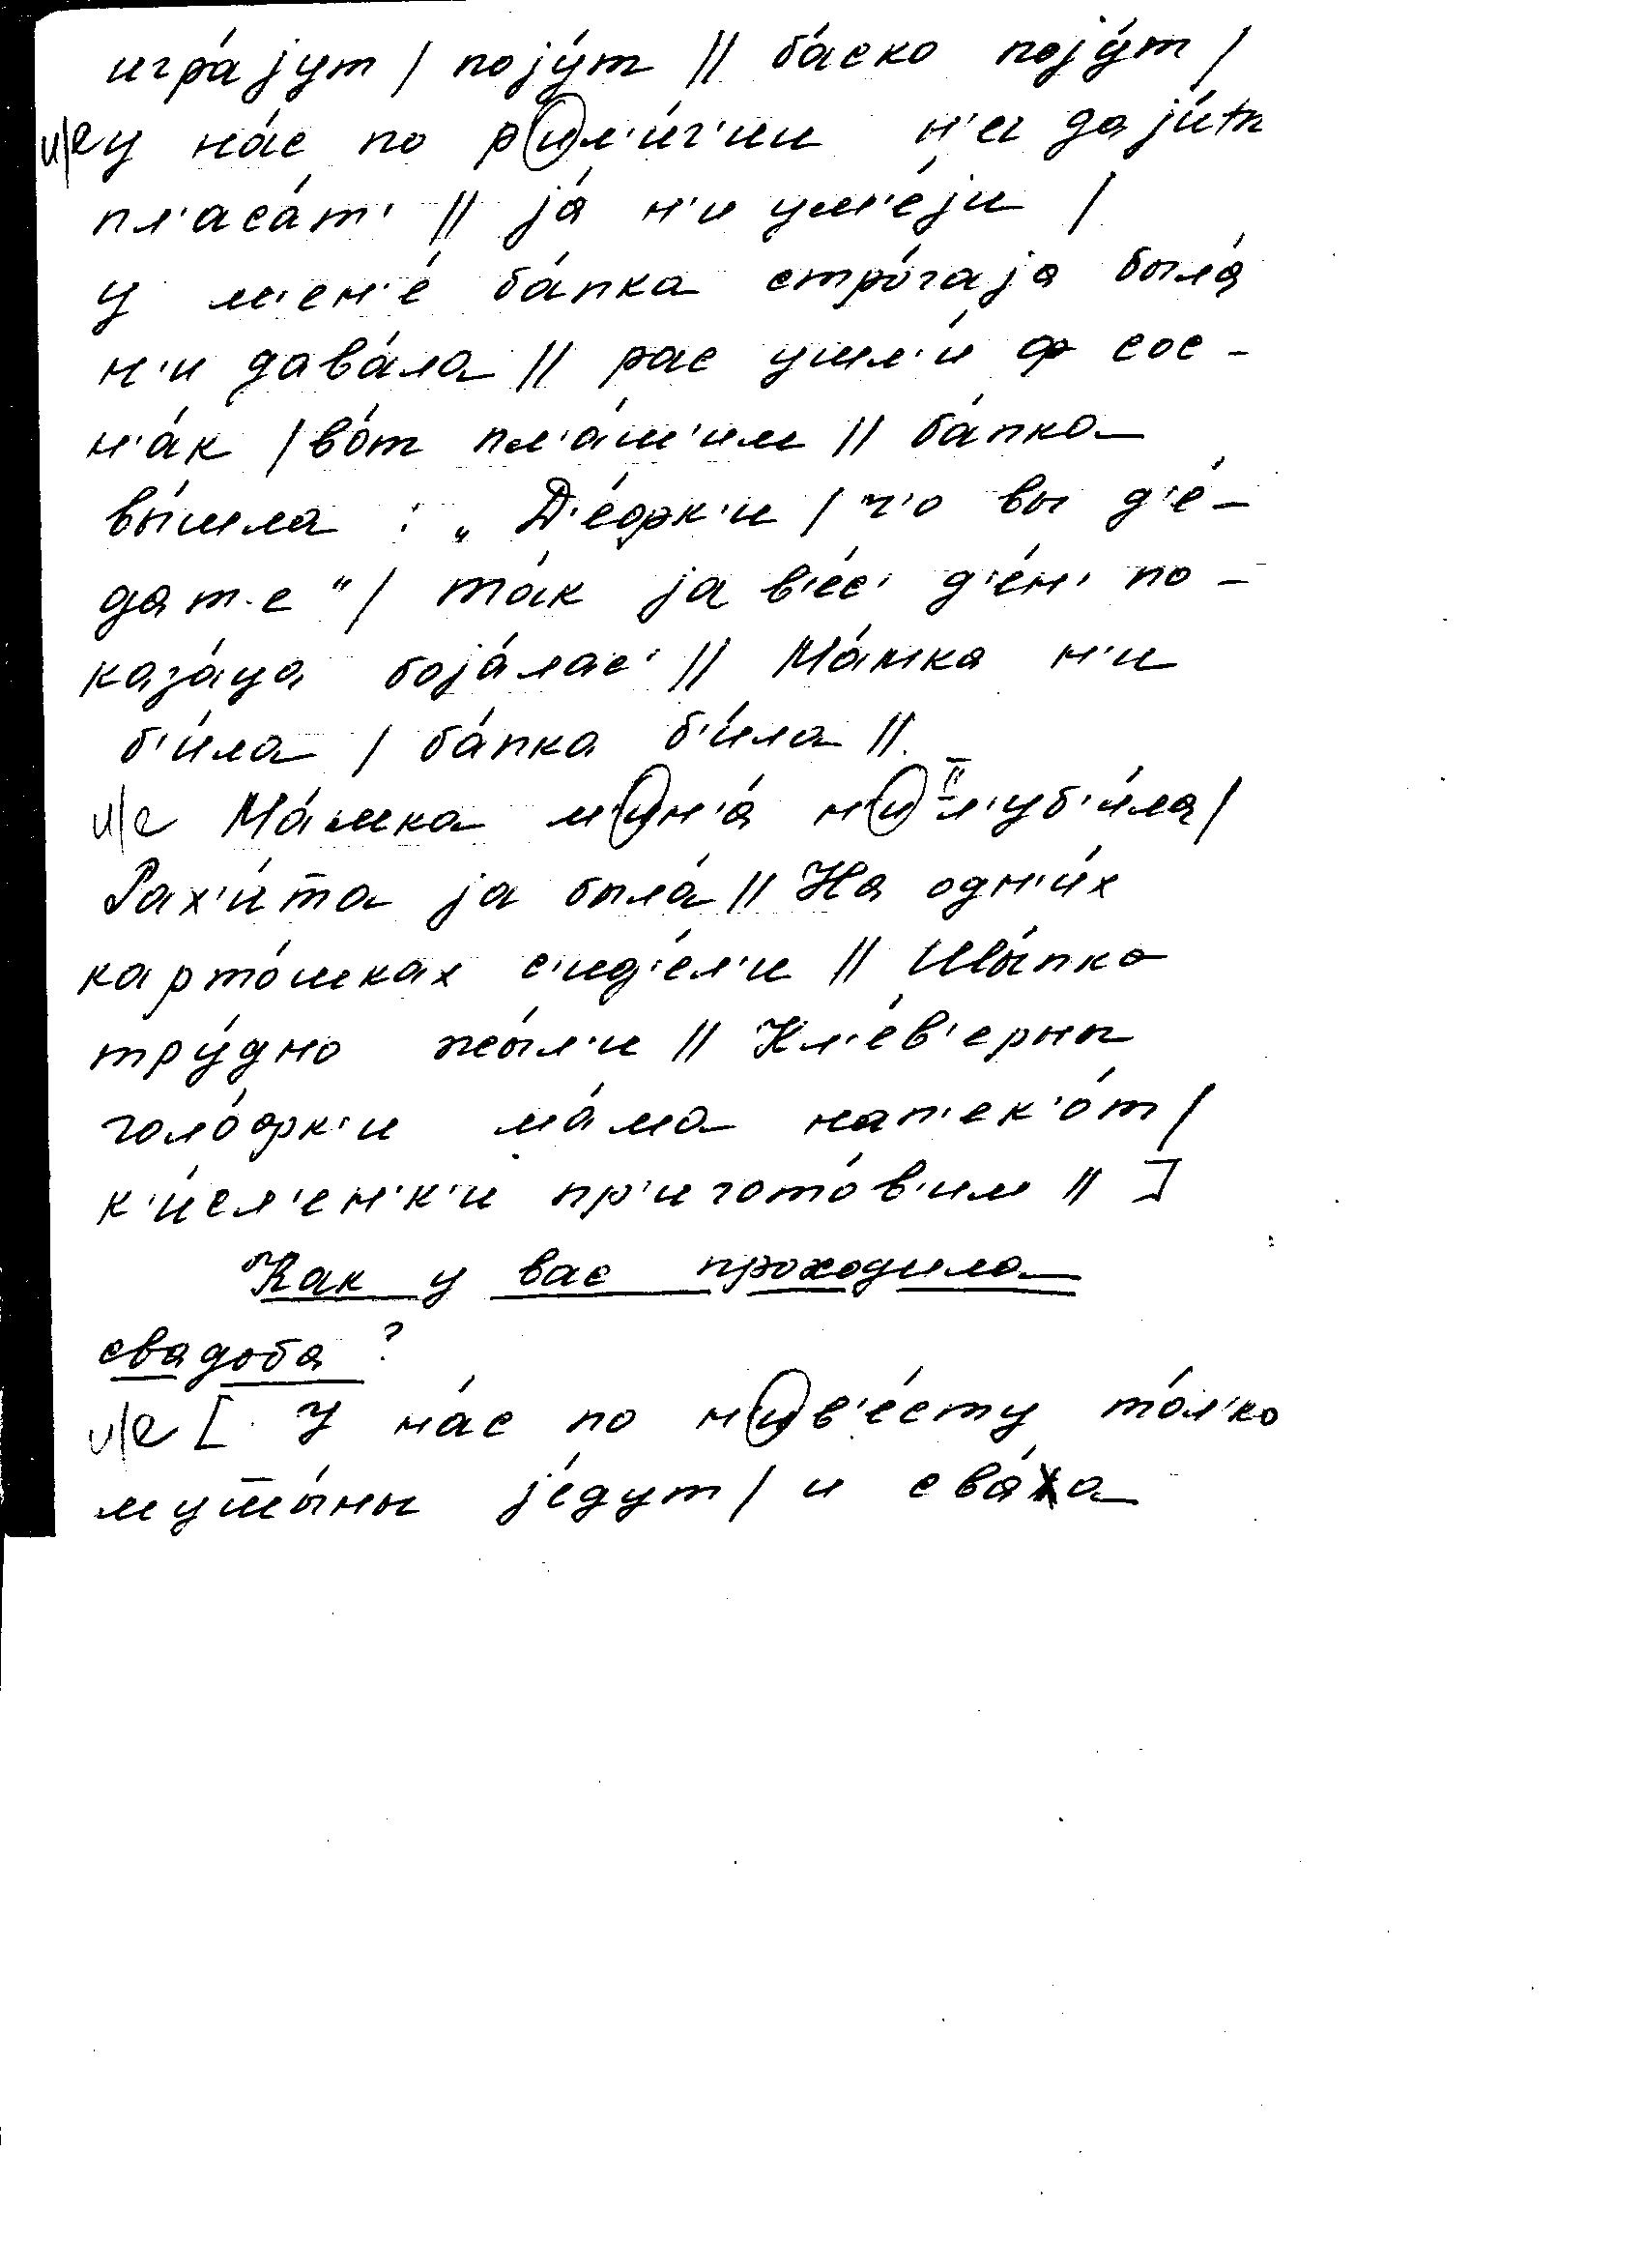 игра́jут / поjу́т // ба́ско поjу́т /
и/е у на́с по рил'и́г'ии н'и даjу́т
пл'аса́т' // jа́ н'и ум'е́jу /
у м'ен'е́ ба́пка стро́гаjа была́
н'и дава́ла // рас ушл'и́ ф сос-
н'а́к / во́т пл'а́ш'им // ба́пка
вы́шла : „Д'е́фк'и / ч'о вы д'е́-
лат'е" / та́к jа в'е́с' д'е́н' по-
каза́ца боjа́лас' // Ма́мка н'и
б'и́ла / ба́пка б'и́ла //
и/е Ма́мка мин'а́ ни II л'уб'и́ла /
Рах'и́та jа была́ // На одн'и́х
карто́шках с'ид'е́л'и // Шы́пко
тру́дно жы́л'и // Кл'е́в'ерны
голо́фк'и ма́ма нап'ек'о́т /
к'и́сл'ен'к'и пр'игото́в'им // ]
Как у вас проходила
свадьба ?
и/е [ У на́с по нив'е́сту то́л'ко
мущы́ны jе́дут / и сва́ха